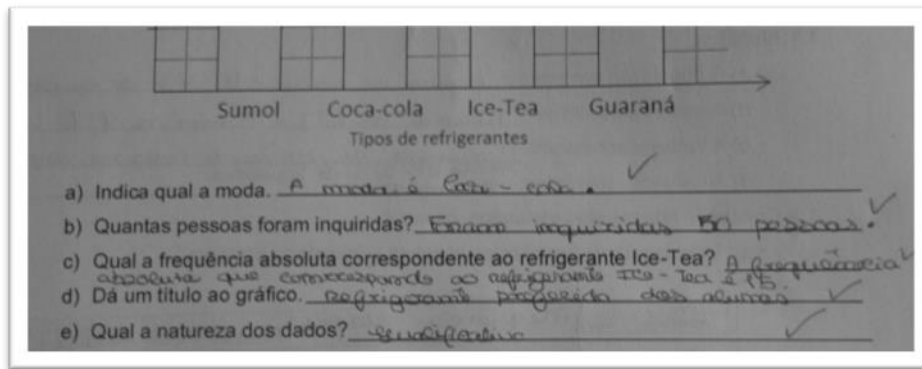 Sumol Coca-cola Ice-Tea Guaraná
Tipos de refrigerantes
a) Indica qual a moda. A moda é Coca-cola.
b) Quantas pessoas foram inquiridas? Foram inquiridas 50 pessoas.
c) Qual a frequência absoluta correspondente ao refrigerante Ice-Tea? A frequência
absoluta que corresponde ao refrigerante Ice-Tea é 15.
d) Dá um título ao gráfico. Refrigerante preferido dos alunos
e) Qual a natureza dos dados? Qualificativo